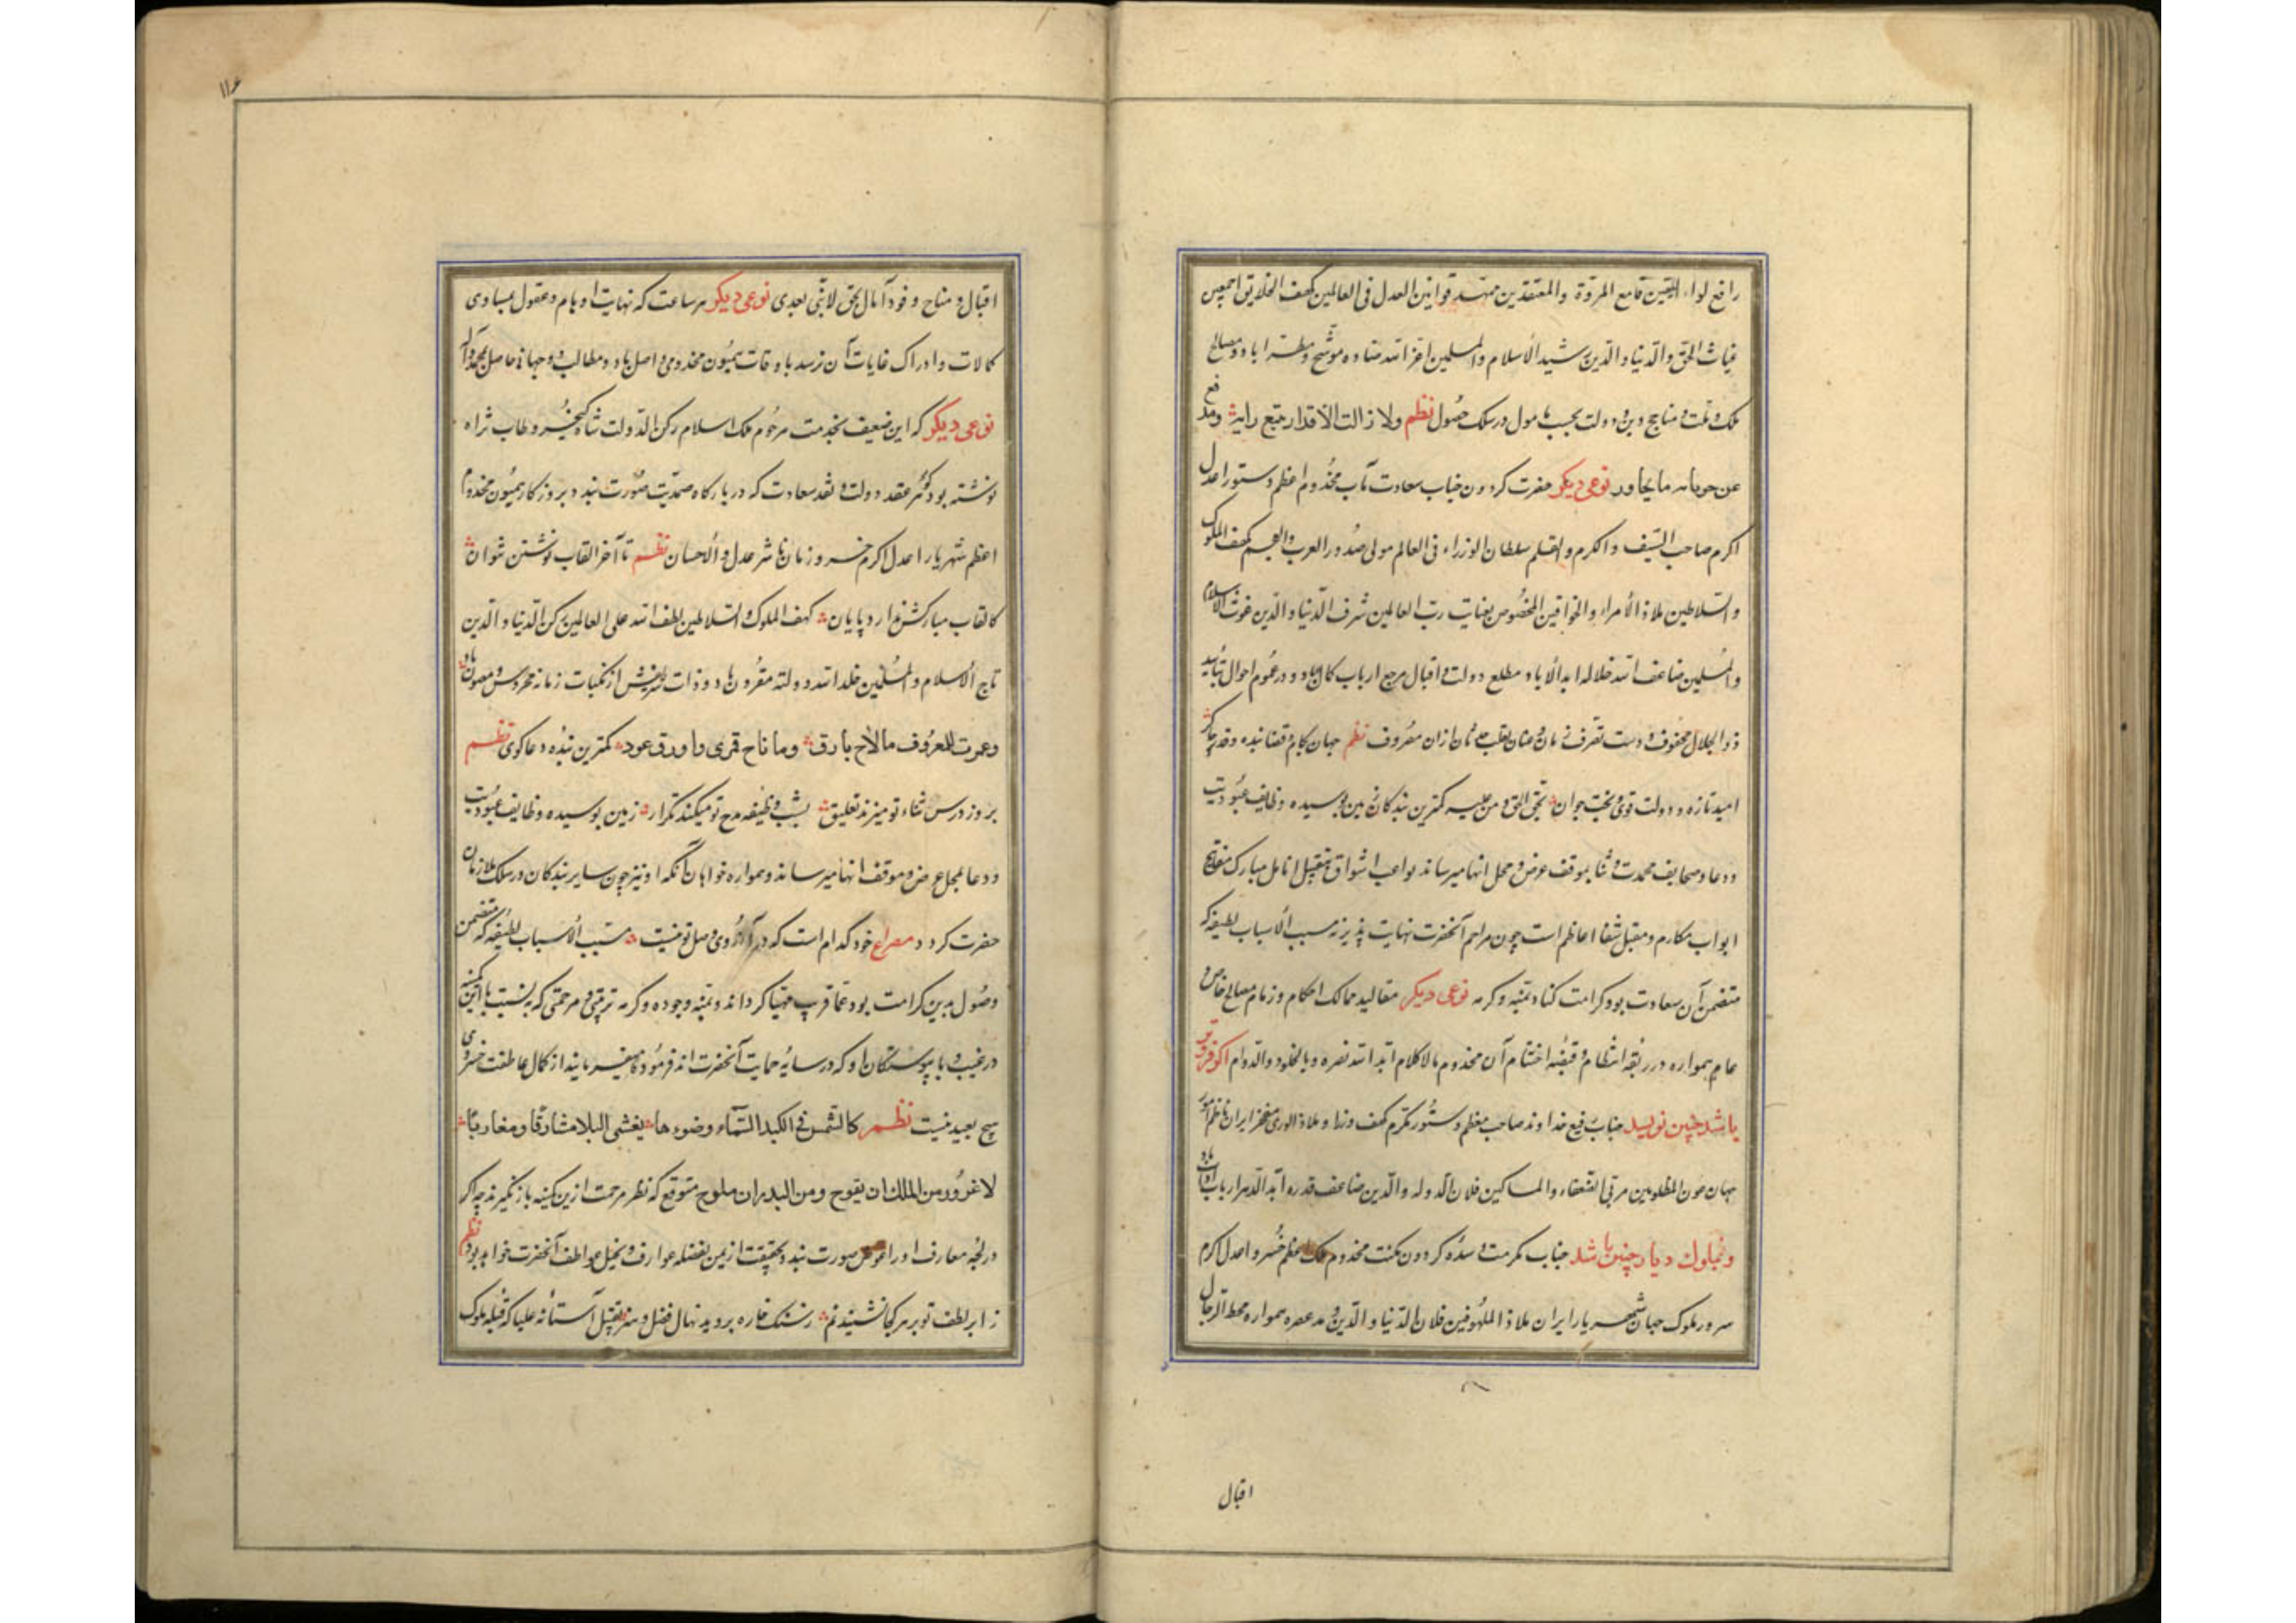 رافع لواء الیقین قامع المردة والمعتقدین ممهّد قوانین العدل فی العالمین کهف الخلایق اجمعین
غیاث الحق والدنیا والدین رشید الاسلام والمسلمین اعز الله موشح و باد و مصالح
ملک و ملت و مناهج دین و دولت بحسب مامول در سلک حصول نظم ولا زالت الاقدار تتبع رایه
عن نوعی دیکر حضرت کردون جناب سعادت مآب مخدوم اعظم دستور اعدل
اکرم صاحب السیف والکرم والقلم سلطان الوزراء فی العالم مولی صدور العرب والعجم کهف الملوک
والسلاطین ملاذ الامراء والخواقین المخصوص بعنایت ربّ العالمین شرف الدنیا والدین غوث الاسلام
والمسلمین ضاعف الله جلاله ابد الاباد مطلع دولت و اقبال مرجع ارباب کمال باد و در عموم احوال بتایید
ذوالجلال محفوف و دست تصرف از آن مصروف نظم جهان بکام و قضا بنده و قدر چاکر
امید تازه و دولت قوی و بخت جوان بحق الحق و من علیه کمترین بندکان زمین بوسیده وظایف عبودیت
و دعا و صحایف محمدت و ثنا بموقف عرض و محل انها میرساند لواعج اشواق بتقبیل انامل مبارک که مفاتح
ابواب مکارم و مقبل شفاه اعاظم است چون مراحم آنحضرت نهایت پذیر نه مسبب الاسباب لطیفه که
متضمن آن سعادت بود کرامت کناد بمنّه و کرمه نوعی دیکر مقالید ممالک احکام و زمام مصالح خاص و
عام همواره در ربقه انتظام و قبضه اختتام آن مخدوم باد الکلام ابد الله نصره و بالخلود والدوام اکر فروتر
باشد چنین نویسد جناب رفیع خداوند صاحب معظم دستور مکرم کهف وزرا و ملاذ الوری مفخر ایران ناظم امور
جهان عون المظلومین مربی الضعفاء والمساکین فلان الدوله والدین ضاعف قدره ابد الدهر ارباب باد
و بملوک دیار چنین باشد جناب مکرمت و سدّه کردون مکنت مخدوم ملک اعظم خسرو اعدل اکرم
سرور ملوک جهان شهریار ایران ملاذ الملهوفین فلان الدنیا والدین مد عصره همواره محط الرحال
اقبال
۱۱۶
اقبال و مناخ وفود آمال بحق لا نبی بعدی نوعی دیکر هر ساعت که نهایت اوهام و عقول بمبادی
کمالات و ادراک غایات آن نرسد باوقات همیون مخدومی واصل باد و مطالب دوجهانی حاصل بمحمد و آله
نوعی دیکر که این ضعیف بخدمت مرحوم ملک اسلام رکن الدولت شاه کیخسرو طاب ثراه
نوشته بود کوهر عقد دولت و نقد سعادت که در بارکاه صمدیت صورت بندد بروزکار همیون مخدوم
اعظم شهریار اعدل اکرم خسرو زمان ناشر عدل والاحسان نظم تا آخر القاب نوشتن نتوان
کالقاب مبارکش ندارد پایان کهف الملوک والسلاطین لطف الله علی العالمین رکن الدنیا والدین
تاج الاسلام والمسلمین خلد الله دولته مقرون باد و ذات شریفش از نکبات زمانه محروس و مصون باد
وعمرت للمعروف مالاح بارق وما ناح قمری وما ورق عود کمترین بنده دعاکوی نظم
بروز درس ثناء تو میزند تعلیق بشب وظیفه مدح تو میکند تکرار زمین بوسیده وظایف عبودیت
و دعا بمحل عرض و موقف انها میرساند و همواره خواهان آنکه او نیز چون سایر بندکان در سلک ملازمان
حضرت کردد مصراع خود کدام است که در آرزوی وصل تو نیست مسبب الاسباب لطیفه که متضمن
وصول بدین کرامت بود عما قریب مهیا کرداند بمنّه و جوده و کرمه تربیتی و مرحمتی که بنسبت با این کمینه
در غیب و با پیوستکان او که در سایه حمایت آنحضرت اند فرموده و میفرمایند از کمال عاطفت خسروی
هیچ بعید نیست نظم کالشمس فی الکبد السماء وضوءها یغشی البلاد مشارقا ومغاربا
لا غرو من الملک ان یفوح ومن البدر ان یلوح متوقع که نظر مرحمت ازین کمینه بازنکیرند چه اکر
در لجه معارف او را غوص صورت بندد بحقیقت از یمن بفضله عوارف و بخیل عواطف آنحضرت خواهد بود نظم
ز ابر لطف تو بر هر کجا نشیند نم ز سنک خاره بروید نهال فضل و هنر تقبیل آستانه علیا که قبله ملوک